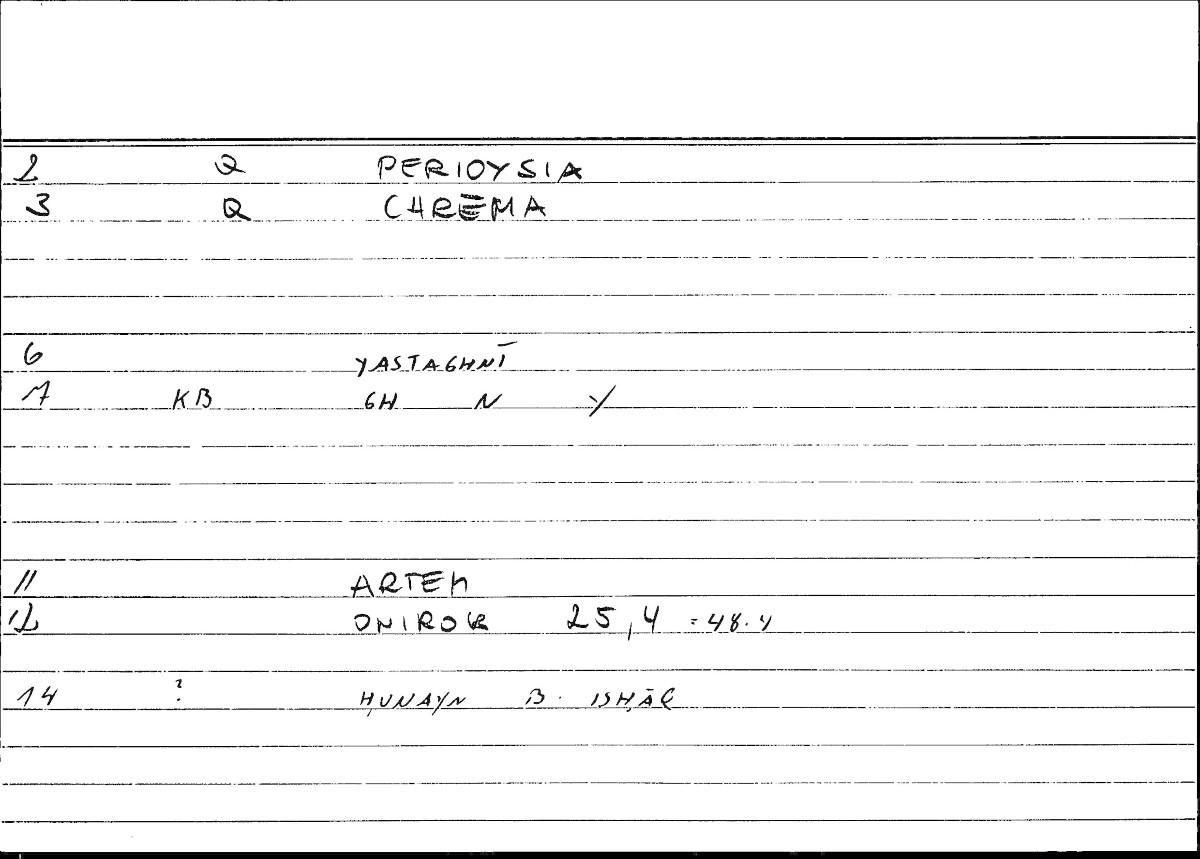 2 Q PERIOYSIA
3 Q CHRĒMA
6 YASTAGHNĪ
7 KB GH N Y
11 ARTEM
12 ONIROK 25,4 = 48.4
14 ? ḤUNAYN B. ISḤĀQ